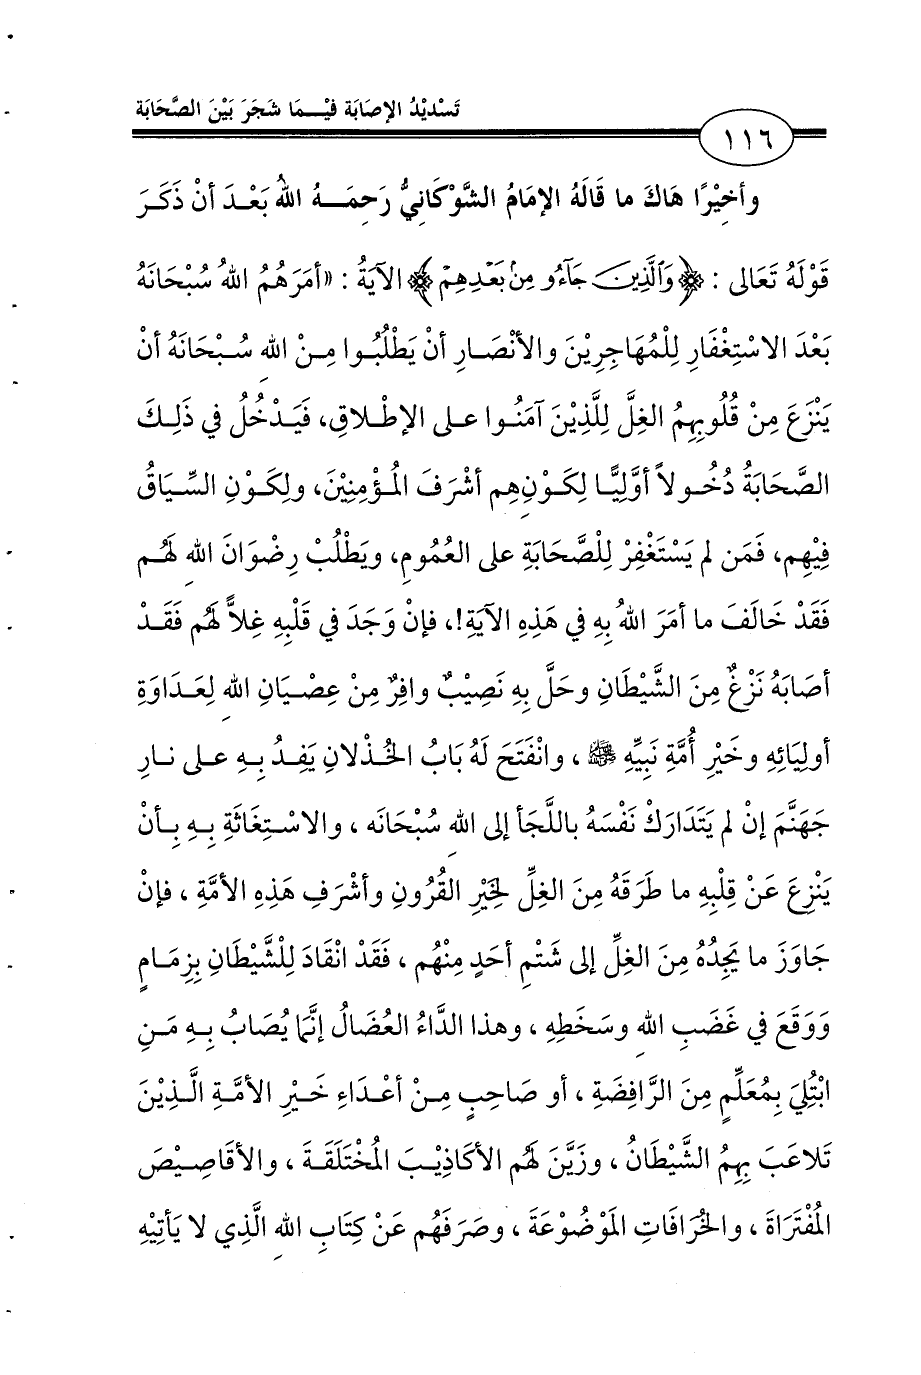 تَسْدِيْدُ الإصَابَة فيْـمَا شَجَرَ بَيْنَ الصَّحَابَة
١١٦
وأخِيْرًا هَاكَ ما قَالَهُ الإمَامُ الشَّوْكَانيُّ رَحِمَـهُ اللهُ بَعْـدَ أنْ ذَكَـرَ
قَوْلَهُ تَعَالى : ﴿وَالَّذِينَ جَاءُو مِنْ بَعْدِهِمْ﴾ الآيَةُ : «أمَرَهُمُ اللهُ سُبْحَانَهُ
بَعْدَ الاسْتِغْفَارِ لِلْمُهَاجِرِيْنَ والأنْصَـارِ أنْ يَطْلُبُـوا مِـنْ اللهِ سُبْحَانَهُ أنْ
يَنْزَعَ مِنْ قُلُوبِهِمُ الغِلَّ لِلَّذِيْنَ آمَنُـوا عـلى الإطْلاقِ، فَيَـدْخُلُ في ذَلِـكَ
الصَّحَابَةُ دُخُـولاً أوَّلِيًّـا لِكَـوْنِهِم أشْرَفَ المُؤْمِنِيْنَ، ولِكَـوْنِ السِّيَاقُ
فِيْهِم، فَمَن لم يَسْتَغْفِرْ لِلْصَّحَابَةِ على العُمُومِ، ويَطْلُبْ رِضْوَانَ اللهِ لهُـم
فَقَدْ خَالَفَ ما أمَرَ اللهُ بِهِ في هَذِهِ الآيَةِ!، فإنْ وَجَدَ في قَلْبِهِ غِلاًّ لهُم فَقَـدْ
أصَابَهُ نَزْغٌ مِنَ الشَّيْطَانِ وحَلَّ بِهِ نَصِيْبٌ وافِرٌ مِنْ عِصْيَانِ اللهِ لِعَدَاوَةِ
أولِيَائِهِ وخَيْرِ أُمَّةِ نَبِيِّهِ ﷺ ، وانْفَتَحَ لَهُ بَابُ الخُذْلانِ يَفِـدُ بِـهِ عـلى نـارِ
جَهَنَّمَ إنْ لم يَتَدَارَكْ نَفْسَهُ باللَّجَأ إلى اللهِ سُبْحَانَه ، والاسْـتِغَاثَةِ بِـهِ بـأنْ
يَنْزِعَ عَنْ قِلْبِهِ ما طَرَقَهُ مِنَ الغِلِّ لِخَيْرِ القُرُونِ وأشْرَفِ هَذِهِ الأمَّةِ ، فإنْ
جَاوَزَ ما يَجِدُهُ مِنَ الغِلِّ إلى شَتْمِ أحَدٍ مِنْهُم ، فَقَدْ انْقَادَ لِلْشَّيْطَانِ بِزِمَـامٍ
وَوَقَعَ في غَضَبِ اللهِ وسَخَطِهِ ، وهذا الدَّاءُ العُضَالُ إنَّما يُصَابُ بِـهِ مَـنِ
ابْتُلِيَ بِمُعَلِّمٍ مِنَ الرَّافِضَةِ ، أو صَاحِبٍ مِـنْ أعْـدَاءِ خَـيْرِ الأمَّـةِ الَّـذِيْنَ
تَلاعَبَ بِهِمُ الشَّيْطَانُ ، وزَيَّنَ لهُم الأكَاذِيْـبَ المُخْتَلَقَـةَ ، والأقَاصِـيْصَ
المُفْتَرَاةَ ، والخُرافَاتِ المَوْضُوْعَةَ ، وصَرَفَهُم عَنْ كِتَابِ اللهِ الَّذِي لا يَأتِيْهِ